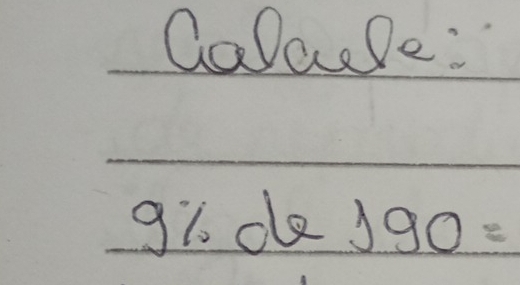 Calcule:
9% de 190 =